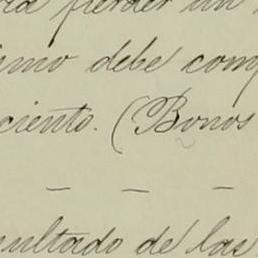 perder un
ismo debe comp
ciento. (Bonos
— — —
sultado de las